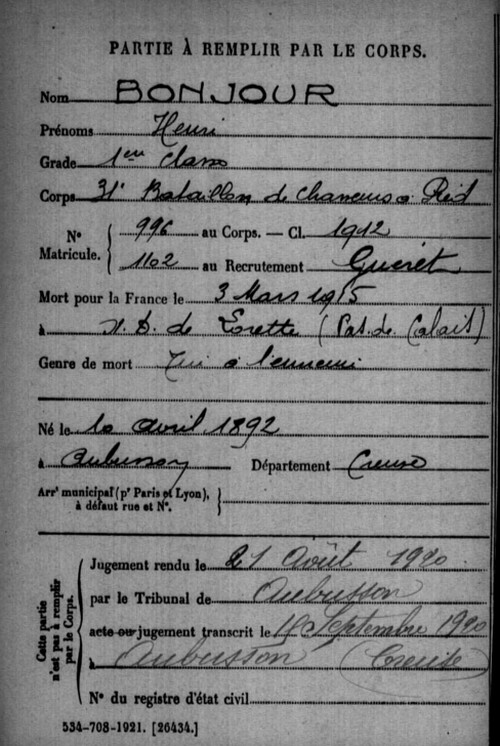 PARTIE À REMPLIR PAR LE CORPS.
Nom BONJOUR
Prénoms Henri
Grade 1ere classe
Corps 31e Bataillon de Chasseurs à Pied
N° Matricule. { 996 au Corps. — Cl. 1912
1102 au Recrutement Guéret
Mort pour la France le 3 Mars 1915
à N. D. de Lorette (Pas. de. Calais)
Genre de mort Tué à l'ennemi
Né le 10 avril 1892
à Aubusson Département Creuse
Arrt municipal (pr Paris et Lyon), à défaut rue et N°. }
Cette partie n'est pas à remplir par le Corps.
Jugement rendu le 21 Août 1920
par le Tribunal de Aubusson
acte ou jugement transcrit le Septembre 1920
à Aubusson (Creuse)
N° du registre d'état civil
534-708-1921. [26434.]